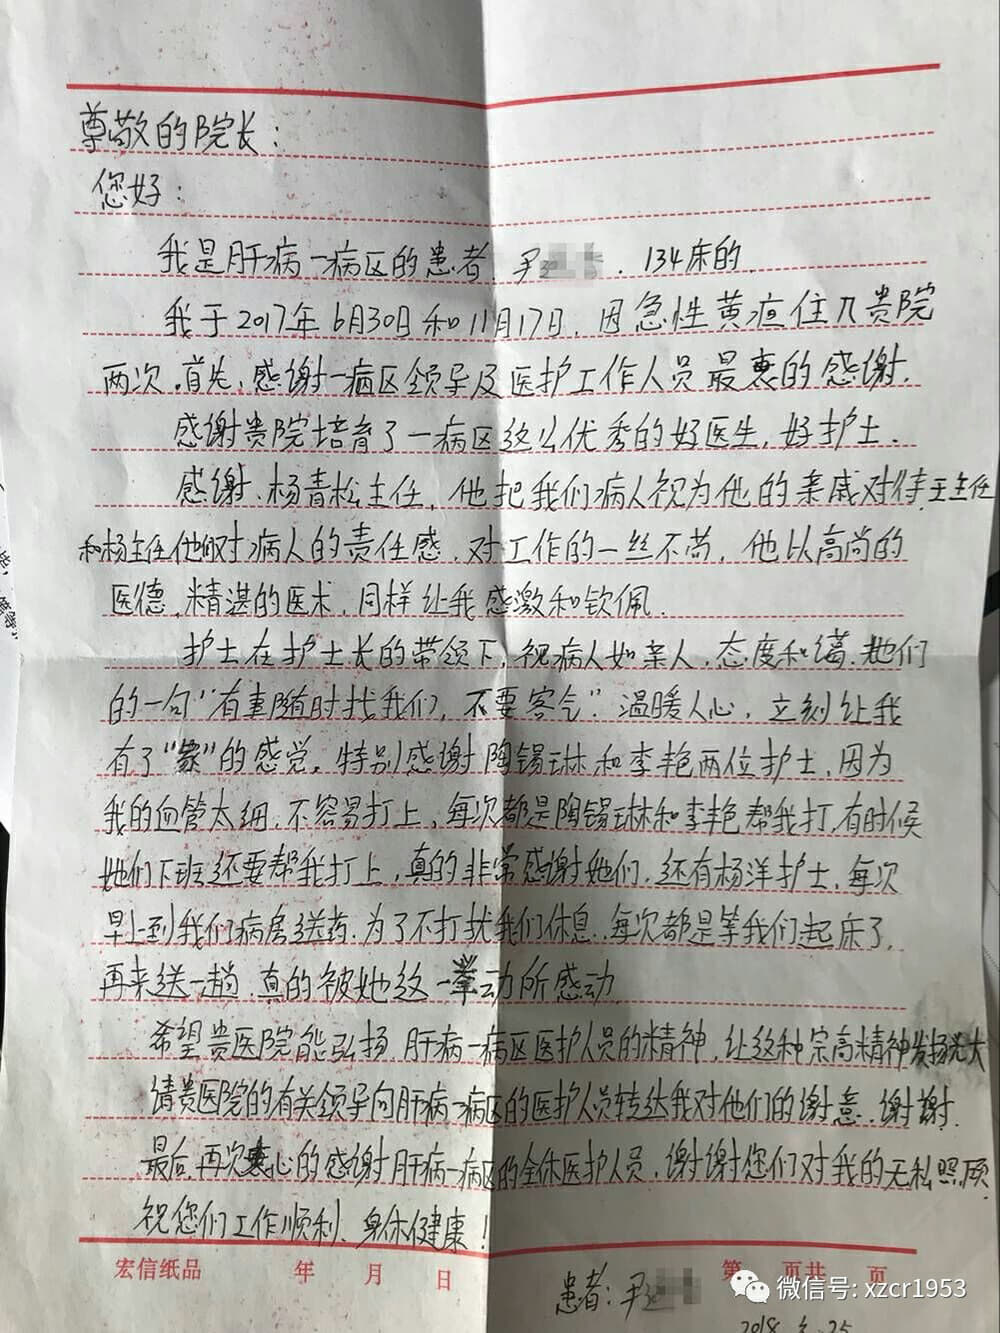 尊敬的院长：
您好：
我是肝病一病区的患者 尹 . 134床的.
我于2017年6月30日和11月17日,因急性黄疸住入贵院
两次.首先,感谢一病区领导及医护工作人员最衷的感谢.
感谢贵院培育了一病区这么优秀的好医生,好护士.
感谢、杨青松主任,他把我们病人视为他的亲戚对待,王主任
和杨主任他们对病人的责任感,对工作的一丝不苟,他以高尚的
医德,精湛的医术,同样让我感激和钦佩.
护士在护士长的带领下,视病人如亲人,态度和蔼.她们
的一句“有事随时找我们,不要客气”.温暖人心,立刻让我
有了“家”的感觉。特别感谢陶锡琳和李艳两位护士,因为
我的血管太细,不容易打上,每次都是陶锡琳和李艳帮我打,有时候
她们下班还要帮我打上,真的非常感谢她们.还有杨洋护士,每次
早上到我们病房送药.为了不打扰我们休息.每次都是等我们起床了,
再来送一趟.真的被她这一举动所感动.
希望贵医院能弘扬肝病一病区医护人员的精神,让这种宗高精神发扬光大
请贵医院的有关领导向肝病一病区的医护人员转达我对他们的谢意.谢谢.
最后,再次衷心的感谢肝病一病区的全体医护人员,谢谢您们对我的无私照顾.
祝您们工作顺利、身体健康!
宏信纸品 年 月 日 第 页共 页
患者:尹
微信号: xzcr1953
2018.